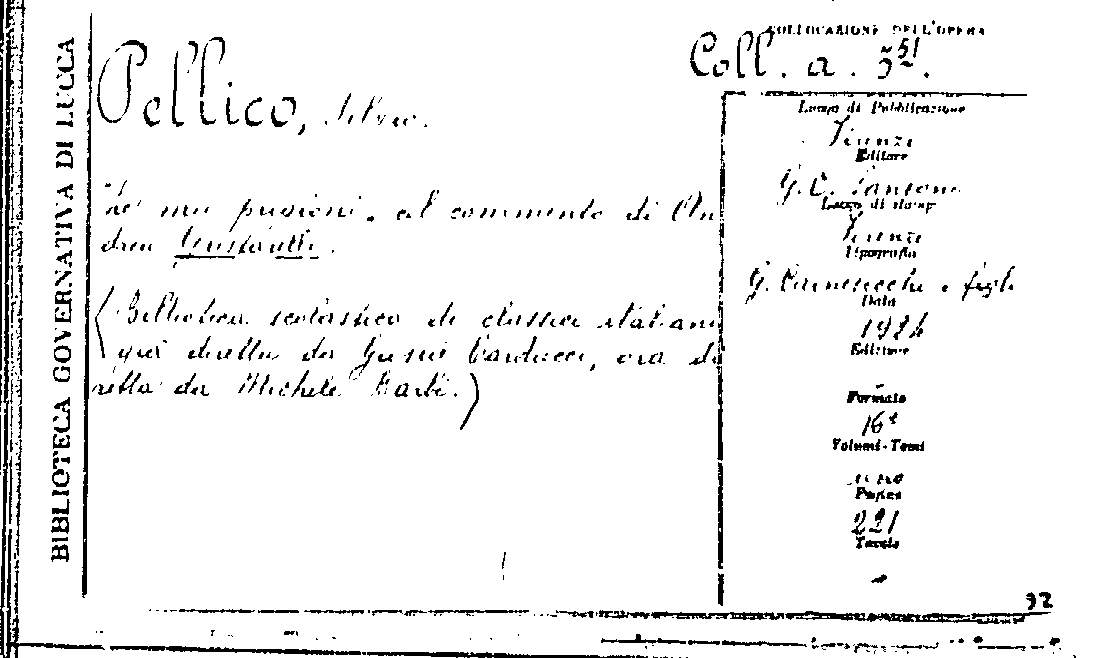 BIBLIOTECA GOVERNATIVA DI LUCCA
COLLOCAZIONE DELL'OPERA
Coll. a. 51
Pellico, Silvio.
Le mie prigioni. col commento di An
drea Gustarelli.
(Biblioteca scolastica di classici italiani
già diretta da Giosuè Carducci, ora di
retta da Michele Barbi.)
Luogo di Pubblicazione
Firenze
Editore
G. C. Sansoni
Luogo di stamp
Firenze
Tipografia
G. Carnesecchi e figli
Data
Edizione
Formato
16°
Volumi-Tomi
uno
Pagine
221
Tavole
92